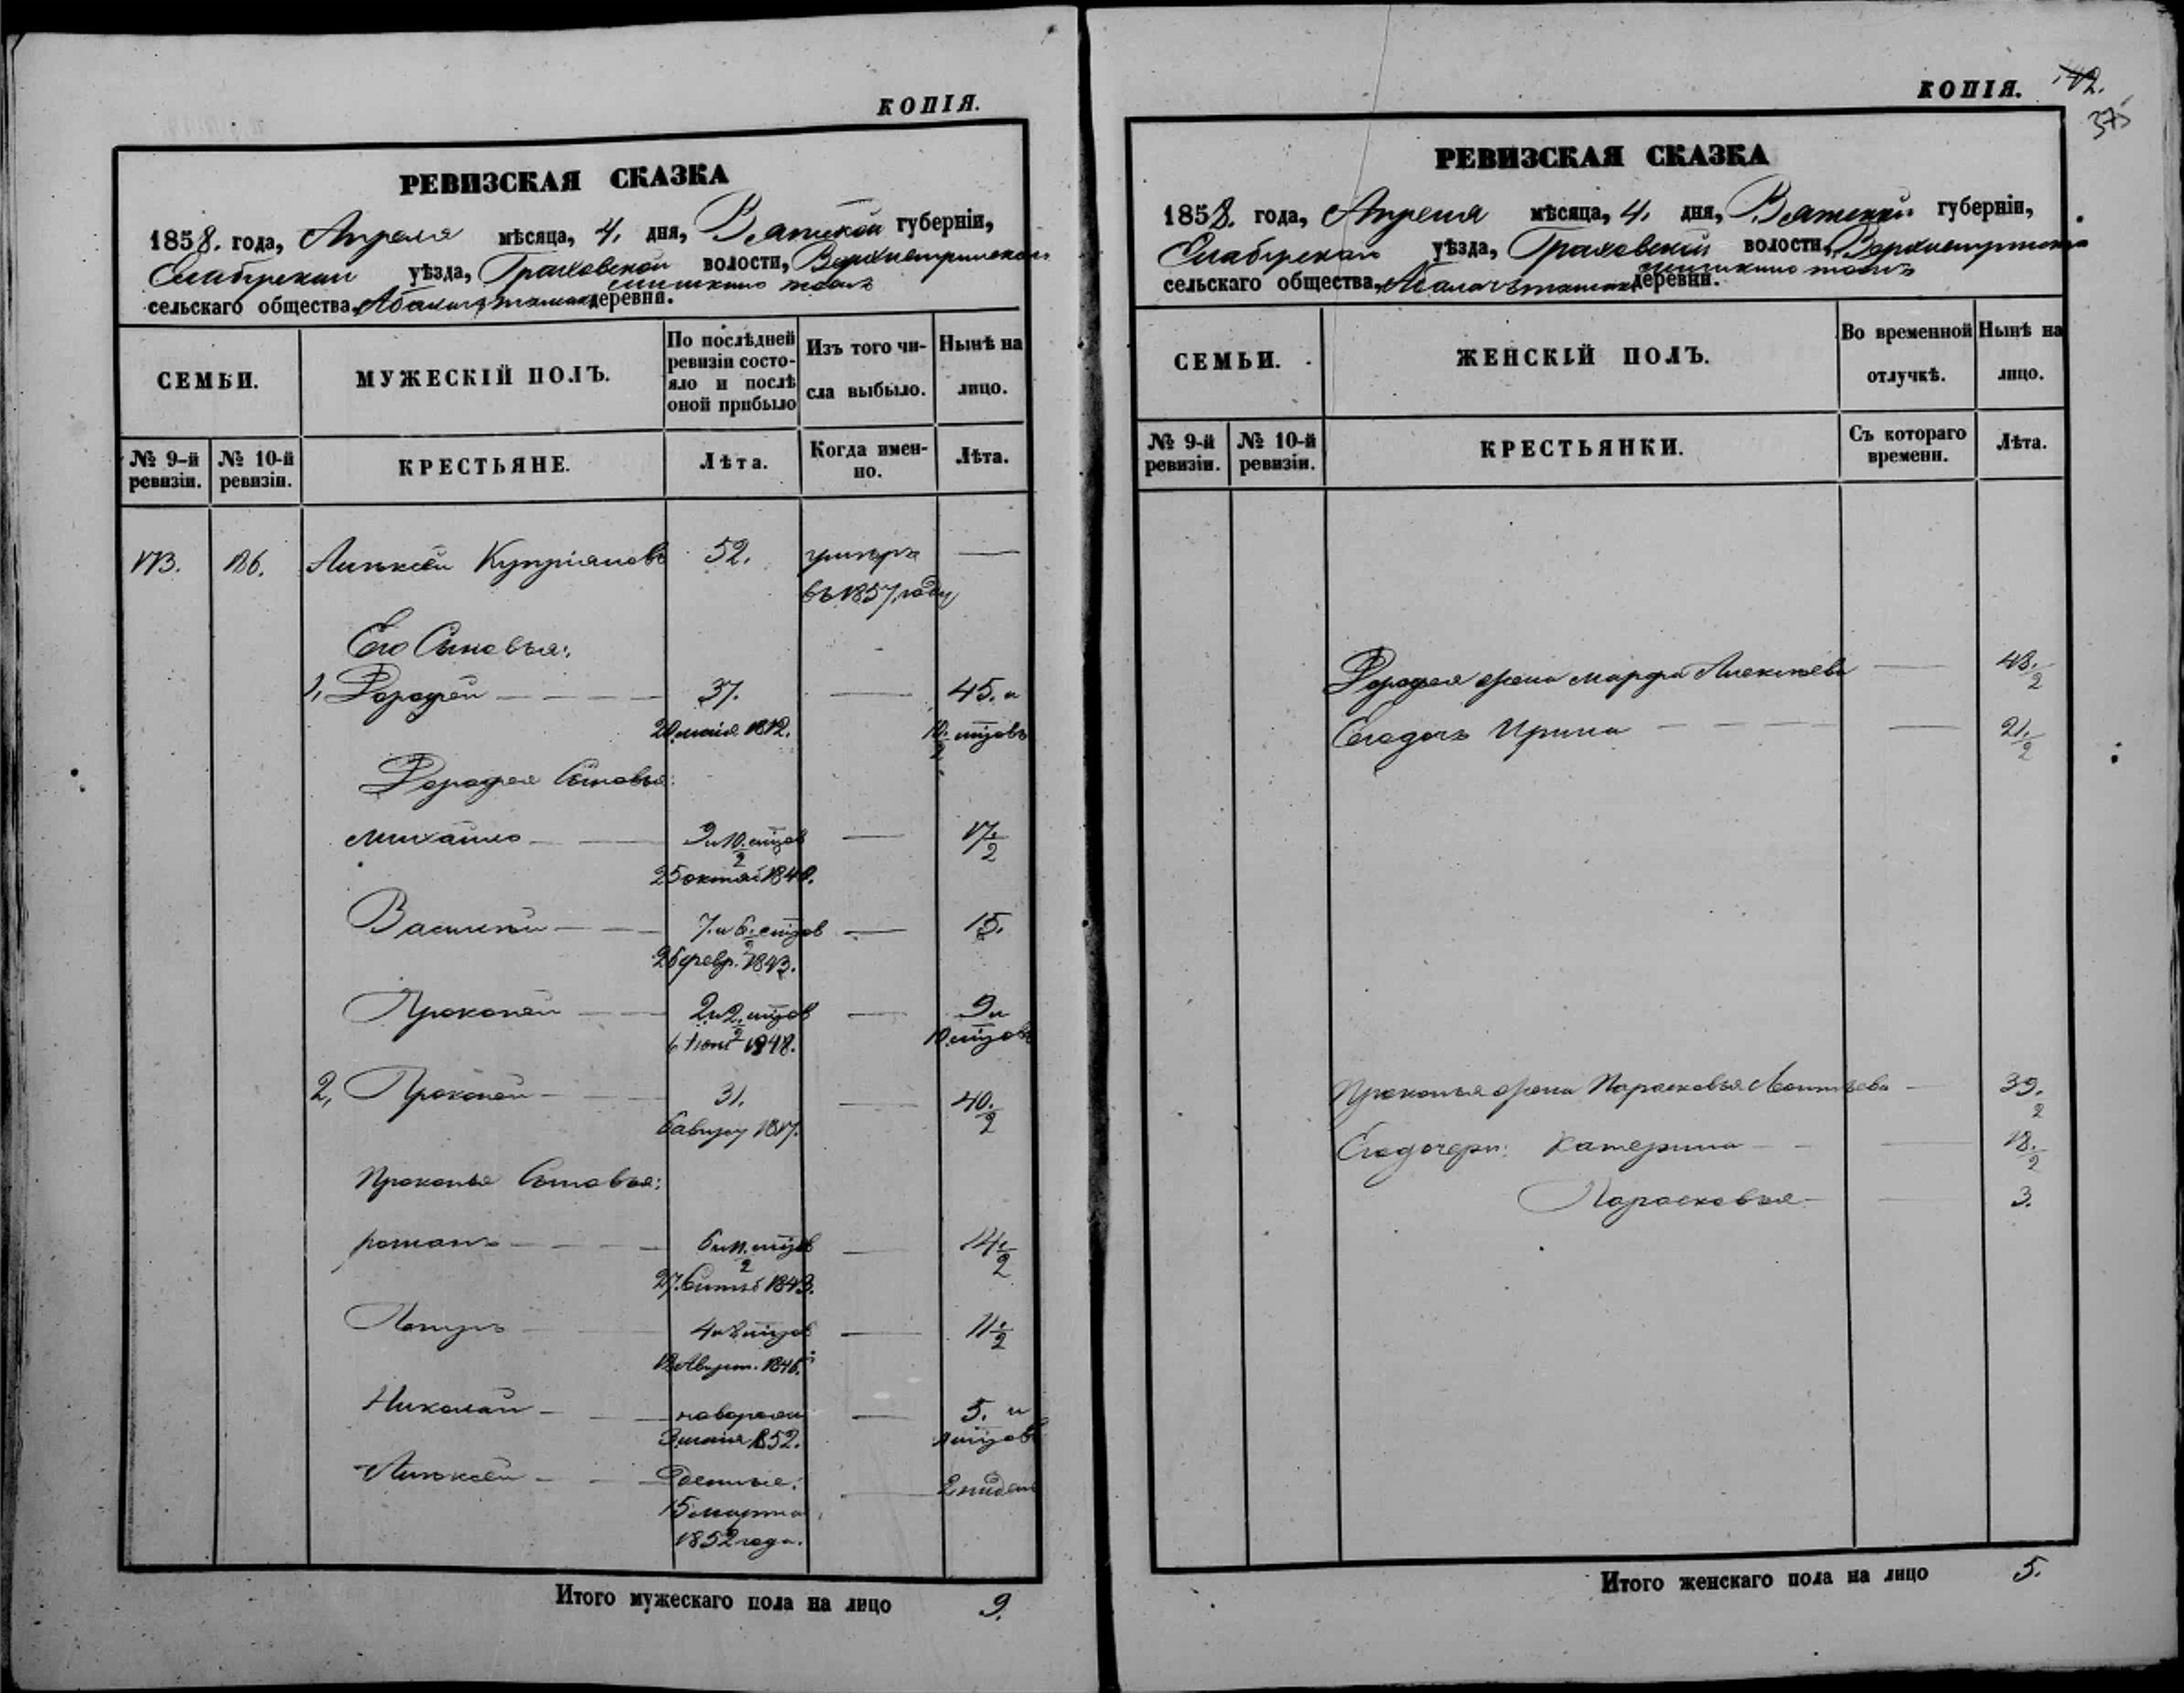 КОПІЯ.
РЕВИЗСКАЯ СКАЗКА
1858. года, Апреля мѣсяца, 4. дня, Вятской губерніи,
уѣзда, Граховской волости,
сельскаго общества, деревни.
СЕМЬИ.
МУЖЕСКІЙ ПОЛЪ.
По послѣдней ревизіи состояло и послѣ оной прибыло
Изъ того числа выбыло.
Нынѣ на лицо.
№ 9-й ревизіи.
№ 10-й ревизіи.
КРЕСТЬЯНЕ.
Лѣта.
Когда именно.
Лѣта.
173. 186. Алѣксѣй Купріяновъ 52. умеръ —
въ 1857 году
Его Сыновья:
1, Дорофей 37. — 45. и
20 маія 1812. 10 мцовъ
Дорофея Сыновья:
Михайло 9 и 10 мцов — 17 1/2
25 октяб 1840.
Василей 7 и 6 мцов — 15.
26 февр. 1843.
Прокопей 2 и 2 мцов — 9 и
6 Іюня 1848. 10 мцовъ
2, Прокопей 31. — 40 1/2
6 авгус 1817.
Прокопья Сыновья:
романъ 6 и 11 мцов — 14 1/2
27. Сінтяб 1843.
4 и 8 мцов — 11 1/2
12 Август. 1846.
Николай новорожд — 5. и
3 маія 1852. 11 мцовъ
Алѣксѣй —
15 марта
1852 года.
Итого мужескаго пола на лицо 9.
КОПІЯ. 142.
375
РЕВИЗСКАЯ СКАЗКА
1858. года, Апреля мѣсяца, 4. дня, Вятской губерніи,
уѣзда, Граховской волости,
сельскаго общества, деревни.
СЕМЬИ.
ЖЕНСКІЙ ПОЛЪ.
Во временной отлучкѣ.
Нынѣ на лицо.
№ 9-й ревизіи.
№ 10-й ревизіи.
КРЕСТЬЯНКИ.
Съ котораго времени.
Лѣта.
Дорофея жена Марфа Алексѣева — 48 1/2
Егодочь Ирина — 21 1/2
Прокопья жена Парасковья Леонтьева — 39. 1/2
Егодочери: Катерина — 18 1/2
Парасковья — 3.
Итого женскаго пола на лицо 5.